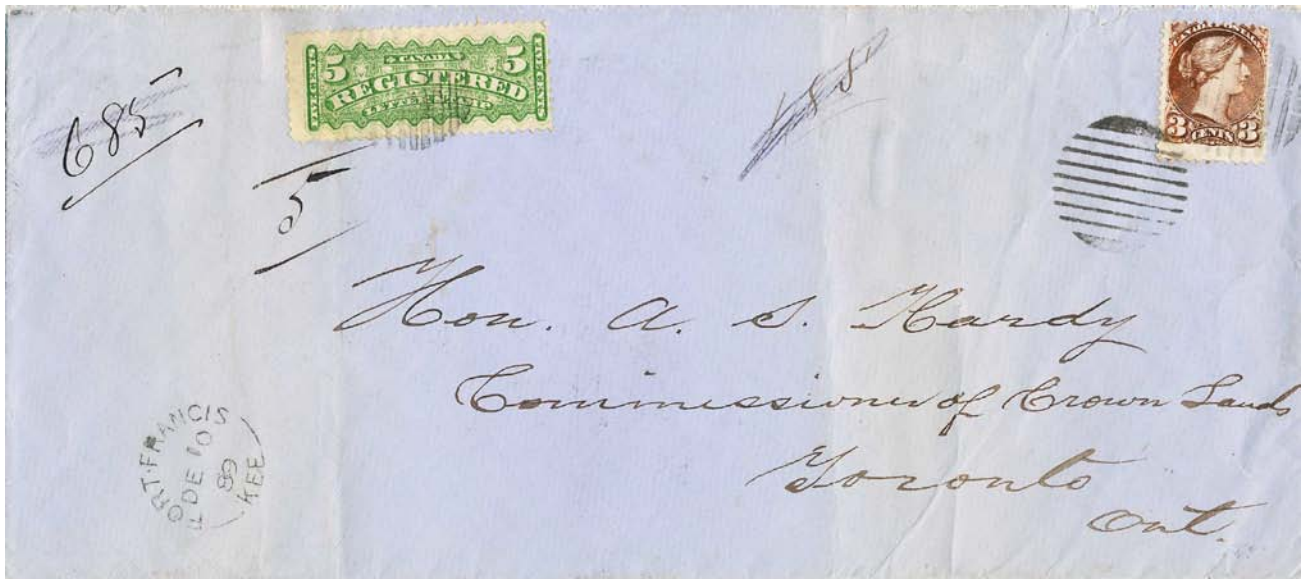 5 CANADA 5
REGISTERED
CANADA POSTAGE
3 CENTS 3
685
5
Hon. A. S. Hardy
Commissioner of Crown Lands
Toronto
Ont.
FORT·FRANCIS
DE 10
89
KEE